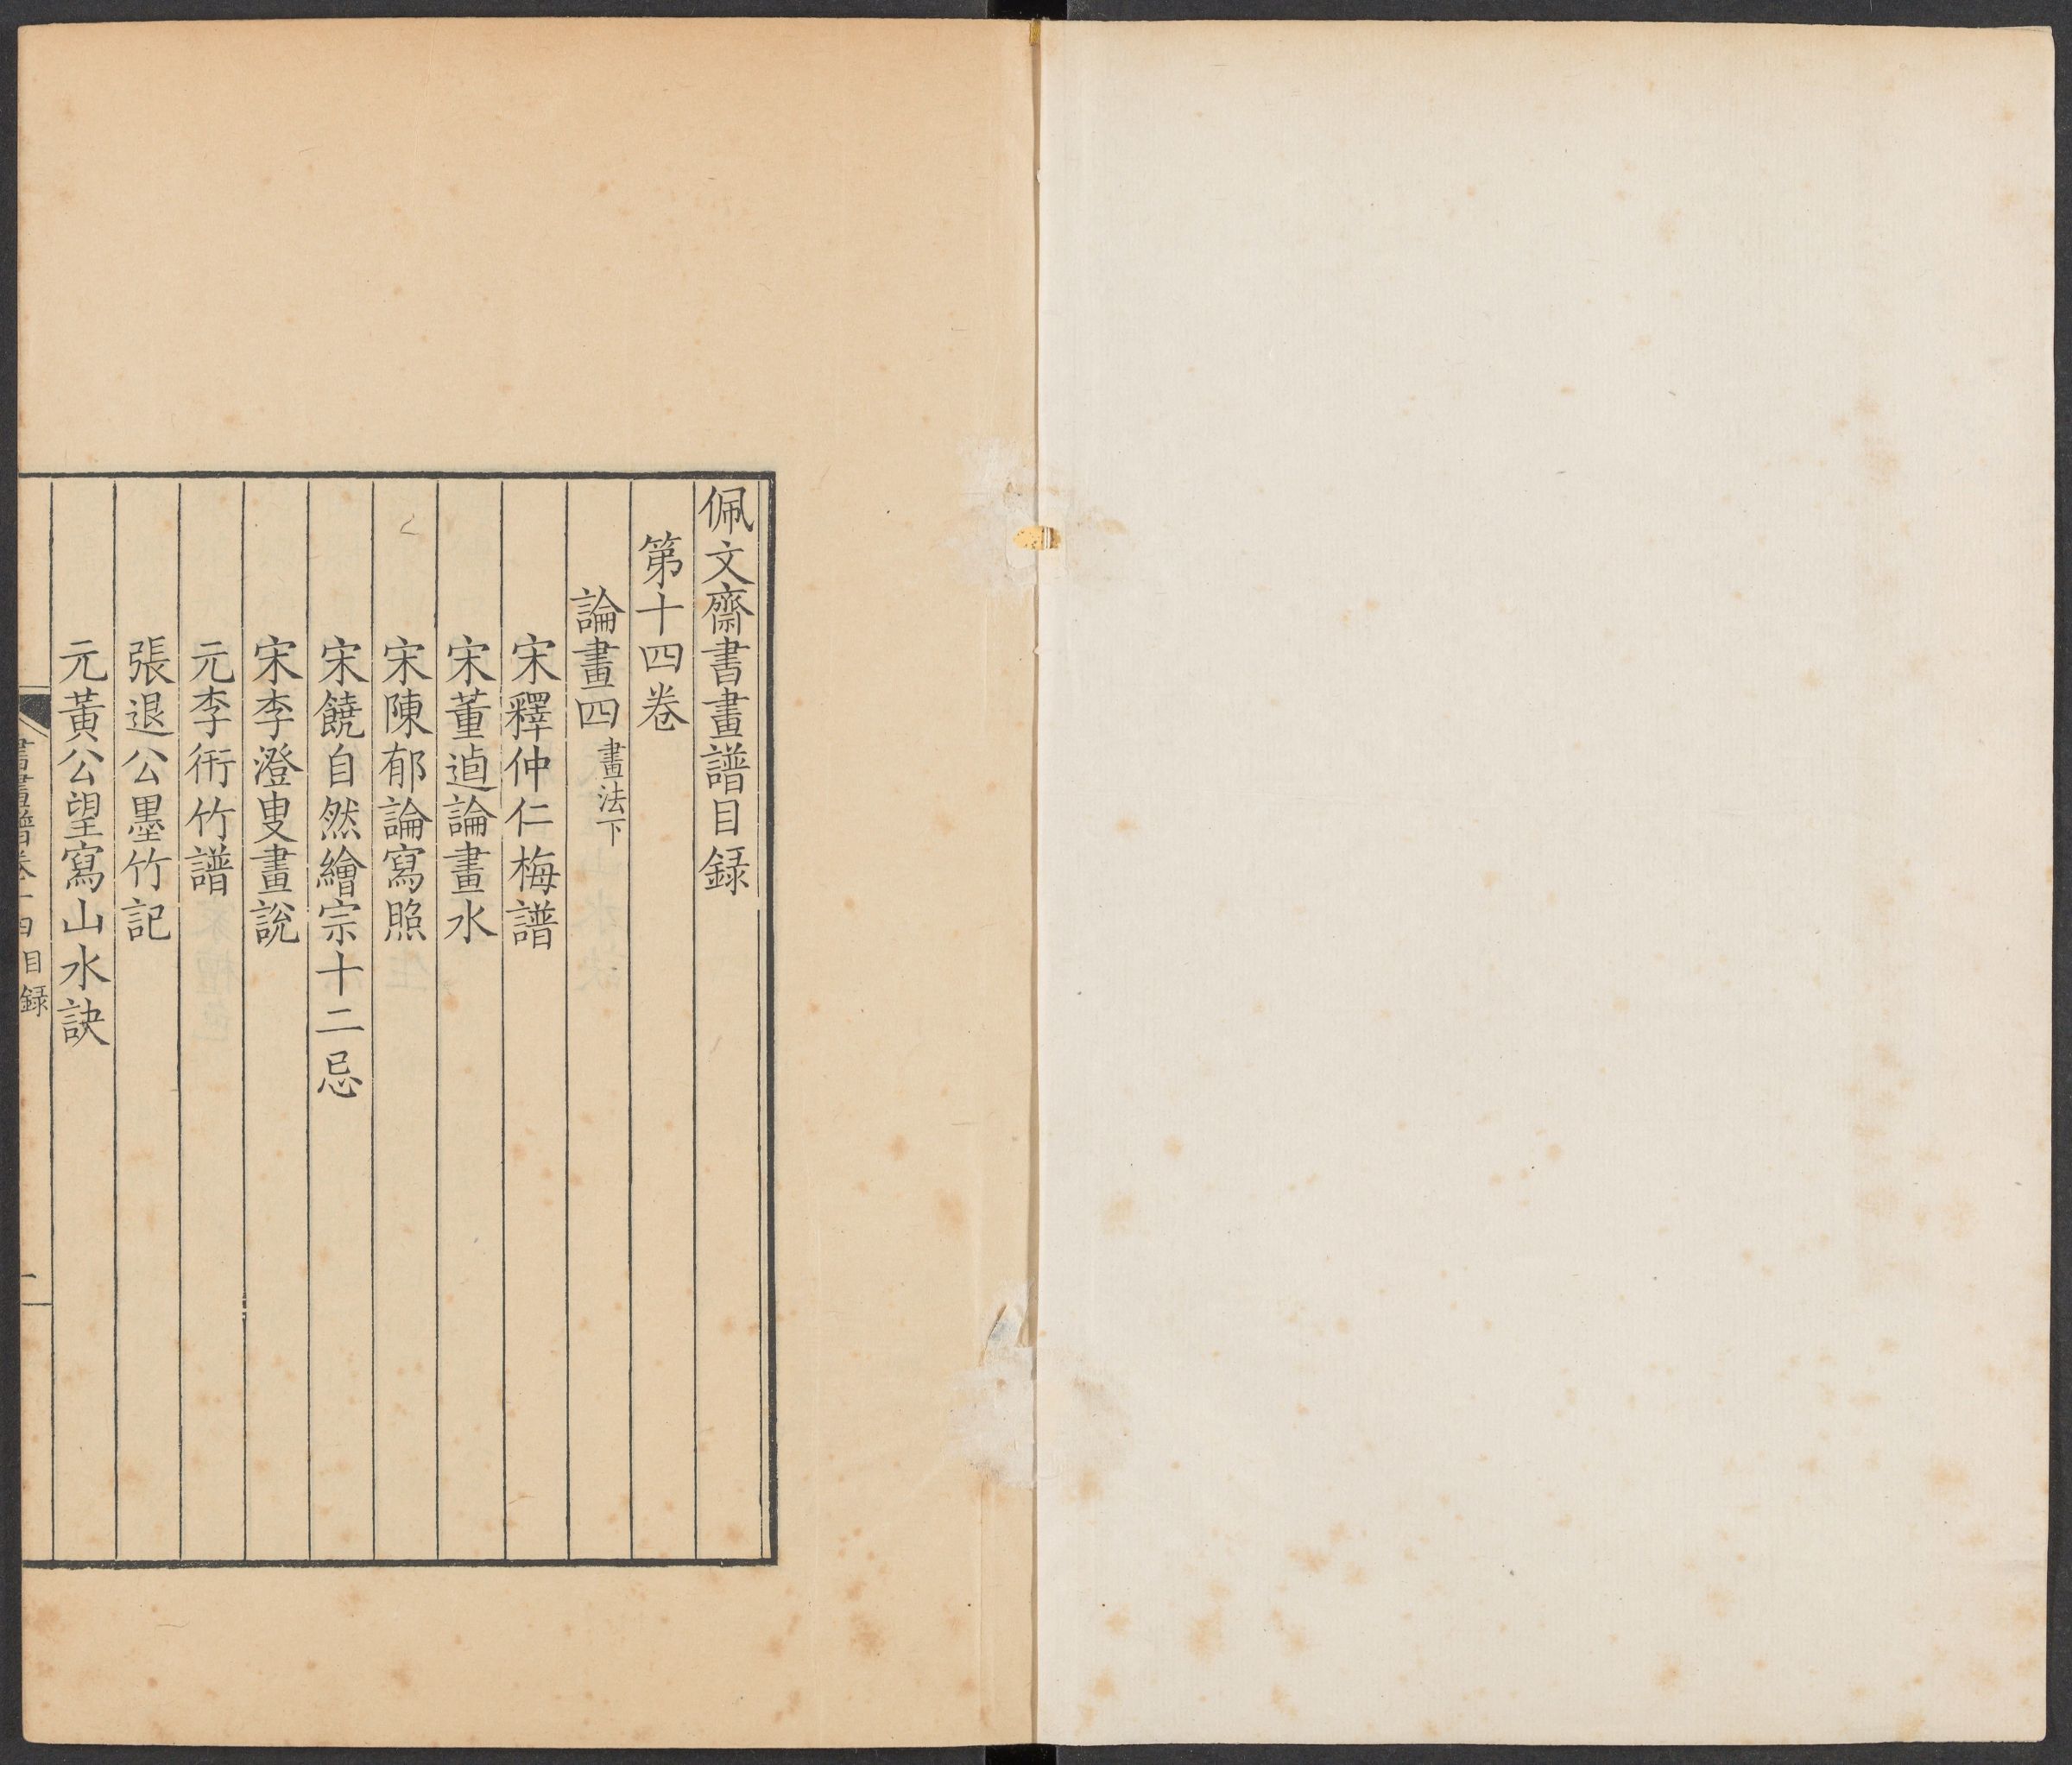 佩文齋書畫譜目録
第十四卷
論畫四畫法下
宋釋仲仁梅譜
宋董逌論畫水
宋陳郁論寫照
宋饒自然繪宗十二忌
宋李澄叟畫說
元李衎竹譜
張退公墨竹記
元黃公望寫山水訣
書畫譜卷十四目録
一